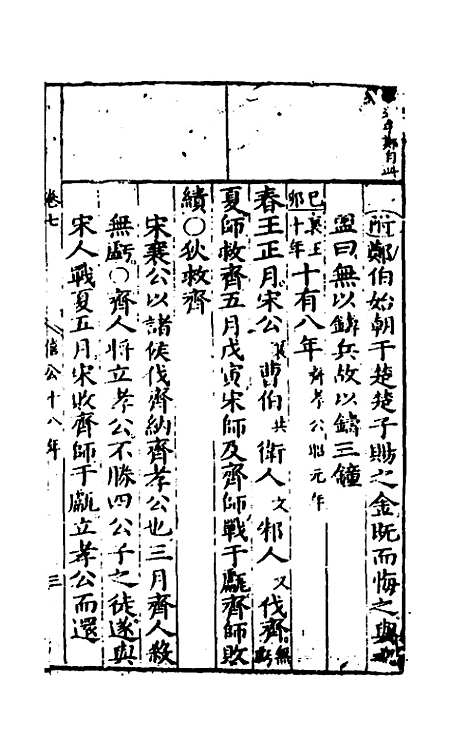 附鄭伯始朝于楚楚子賜之金既而悔之與
盟曰無以鑄兵故以鑄三鐘
己卯襄王十年十有八年齊孝公昭元年
春王正月宋公襄曹伯共衛人文邾人文伐齊無虧
夏師救齊五月戊寅宋師及齊師戰于甗齊師敗
績○狄救齊
宋襄公以諸侯伐齊納齊孝公也三月齊人殺
無虧○齊人將立孝公不勝四公子之徒遂與
宋人戰夏五月宋敗齊師于甗立孝公而還
卷七
僖公十八年
三